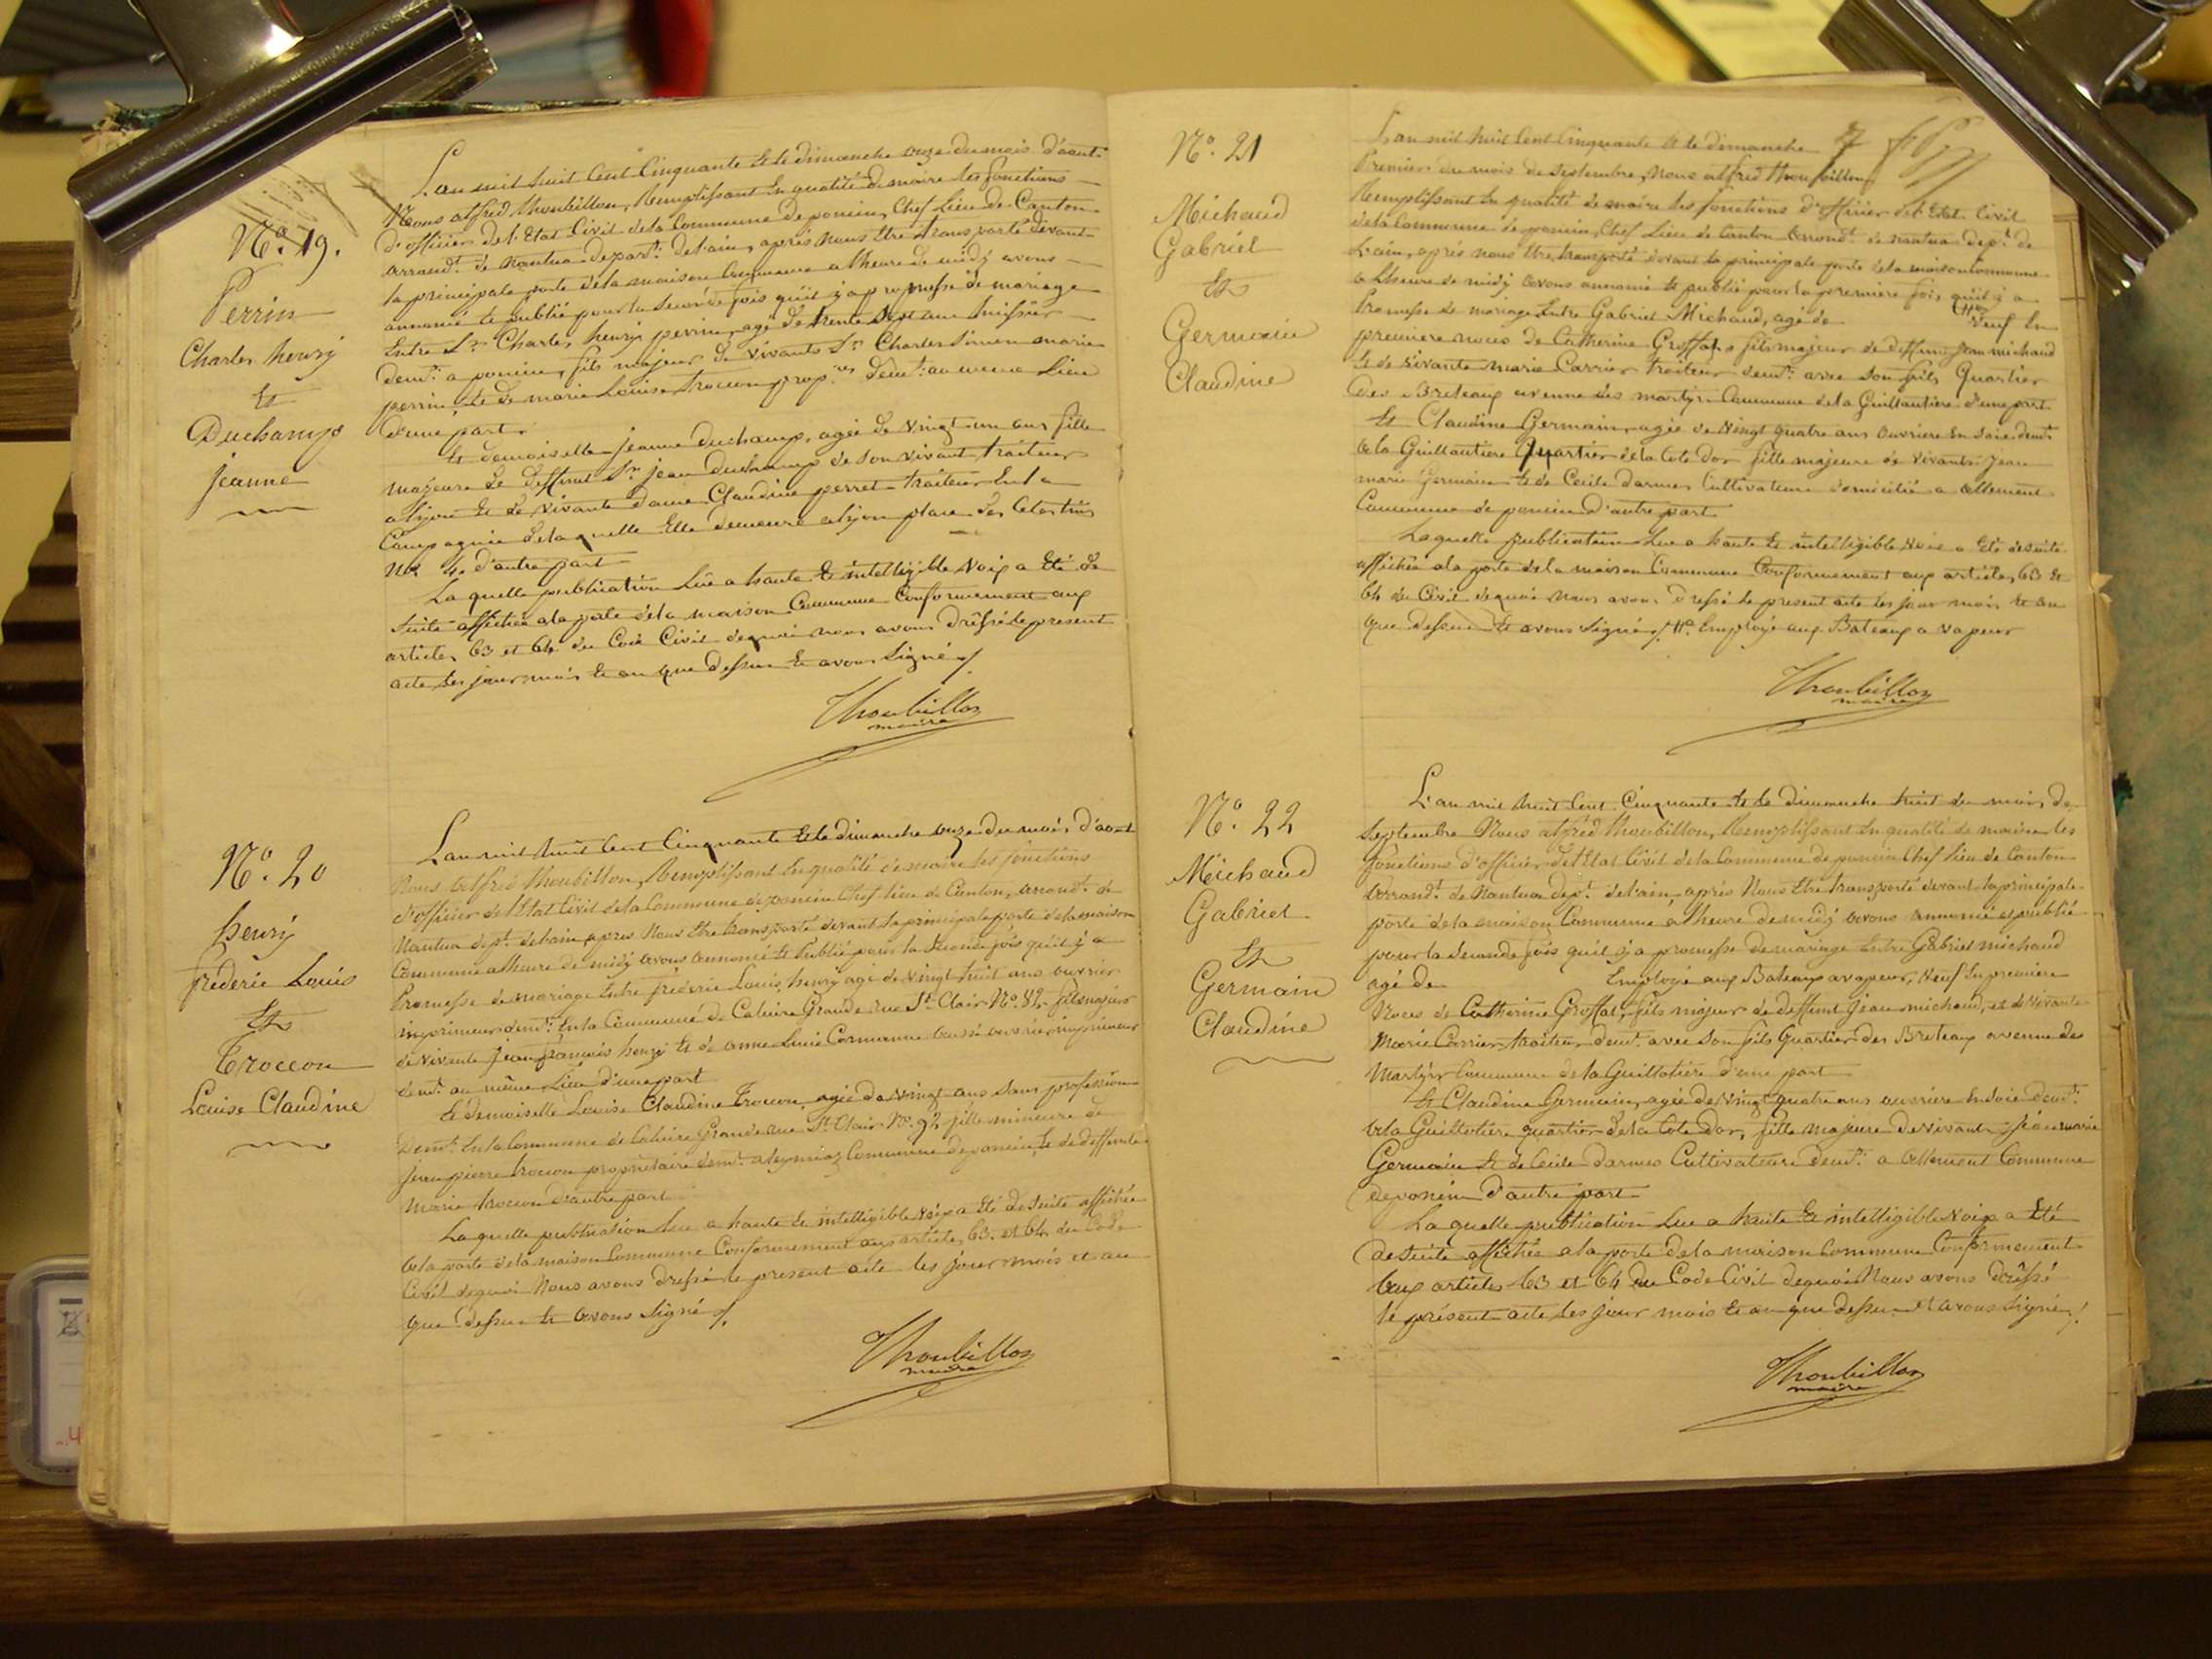 N.º 19.
Perrin
Charles henry
Et
Duchamp
jeanne
L'an mil huit Cent Cinquante Et le dimanche onze du mois d'aout
Nous alfred Thoubillon, Remplissant En qualité de maire les fonctions
d'officier de l'Etat Civil de la Commune de poncin, Chef Lieu de Canton
arrond.t de nantua depart.t de l'ain, après nous Etre transporté devant
la principale porte de la maison Commune a lheure de midy avons
annoncé et publié pour la seconde fois qu'il y a promesse de mariage
Entre S.r Charles henry perrin, agé de trente Sept ans huissier
dem.t a poncin, fils majeur de vivants S.r Charles Simon marie
perrin, Et de marie Louise trocon prop.res dem.t au meme Lieu
d'une part.
Et demoiselle jeanne duchamp, agée de vingt un ans fille
majeure de deffunt S.r jean duchamp de son vivant traiteur
a lyon Et de vivante dame Claudine perret traiteur En la
Compagnie de laquelle Elle demeure a lyon place des Celestins
N.º 4. d'autre part
La quelle publication Lue a haute Et intelligible Voix a Eté de
suite affichée a la porte de la maison Commune Conformement aux
articles 63 et 64 du Code Civil de quoi nous avons dréssé le present
acte, les jour mois Et an que dessus Et avons Signé ./.
Thoubillon
maire
N.º 20
henry
frederic Louis
Et
Troccon
Louise Claudine
L'an mil huit Cent Cinquante Et le dimanche onze du mois d'aout
Nous alfred Thoubillon, Remplissant En qualité de maire les fonctions
d'officier de l'Etat Civil de la Commune de poncin Chef lieu de Canton, arrond.t de
Nantua dept. de l'ain apres Nous Etre transporté devant la principale porte de la maison
Commune a lheure de midy avons annoncé Et Publié pour la seconde fois qu'il y a
Promesse de mariage Entre fréderic Louis henry agé de vingt huit ans ouvrier
imprimeur dem.t En la Commune de Caluire Grande rue S.t Clair N.º 92. fils majeur
de vivants Jean françois henry Et de anne Cormanne aussi ouvrier imprimeur
dem.t au même Lieu d'une part
Et demoiselle Louise Claudine Trocon, agée de vingt ans sans profession
Dem.t En la Commune de Caluire Grande rue S.t Clair N.º 92 fille mineure de
Jean pierre trocon propriétaire dem.t a Commune de poncin, Et de deffunte
Marie trocon d'autre part
La quelle publication Lue a haute Et intelligible Voix a Eté de Suite affichée
a la porte de la maison Commune Conformement aux articles, 63. et 64 du Code
Civil de quoi Nous avons dressé le present acte les jour mois et an
que dessus Et avons Signé ./.
Thoubillon
maire
N.º 21
Michaud
Gabriel
Et
Germain
Claudine
L'an mil huit Cent Cinquante Et le dimanche
Premier du mois de Septembre, Nous alfred Thoubillon
Remplissant En qualité de maire les fonctions d'officier de l'Etat Civil
de la Commune de poncin, Chef Lieu de Canton arrond.t de nantua dep.t de
L'ain, après nous Etre transporté devant la principale porte de la maison Commune
a L'heure de midy avons annoncé Et publié pour la premiere fois, qu'il y a
Promesse de mariage Entre Gabriel Michaud, agé de veuf En
premiere noces de Catherine Groffat, fils majeur de deffunt Jean michaud
Et de vivante marie Carrier traiteur dem.t avec son fils Quartier
des Breteaux avenue des martyrs Commune de la Guillautiere d'une part
Et Claudine Germain, agée de vingt quatre ans ouvriere En Soie dem.t
a la Guillautiere Quartier de la Cote dor fille majeure de vivants Jean
marie Germain Et de Cecile darmes Cultivateurs domicilié a allement
Commune de poncin d'autre part
Laquelle publication Lue a haute Et intelligible Voix a Eté de suite
affichée a la porte de la maison Commune Conformement aux articles, 63 Et
64 du Civil de quoi nous avons dressé le present acte les jour mois Et an
que dessus Et avons Signé ./. Employé aux Bateaux a vapeur
Thoubillon
maire
N.º 22
Michaud
Gabriel
Et
Germain
Claudine
L'an mil huit Cent Cinquante Et le dimanche huit du mois, de
Septembre Nous alfred Thoubillon, Remplissant En qualité de maire les
fonctions d'officier, de l'Etat Civil de la Commune de poncin Chef lieu de Canton
arrond.t de Nantua dep.t de l'ain, après Nous Etre transporté devant la principale
porte de la maison Commune a lheure de midy avons annoncé et publié
pour la seconde fois qu'il y a promesse de mariage Entre Gabriel michaud
agé de Employé aux Bateaux a vapeur, Veuf En premiere
Noces de Catherine Groffat, fils majeur de deffunt Jean michaud, et de vivante
Marie Carrier, traiteur, dem.t avec Son fils Quartier des Breteaux avenue des
Martyrs Commune de la Guillotiere d'une part
Et Claudine Germain, agée de vingt quatre ans ouvriere En Soie dem.t
a la Guillotiere quartier de la Cote Dor, fille majeure de vivants Jean marie
Germain Et de Cecile darmes Cultivateurs dem.t a allement Commune
de poncin d'autre part
La quelle publication Lue a haute Et intelligible Voix a Eté
de Suite affichée a la porte de la maison Commune Conformement
aux articles 63 et 64 du Code Civil de quoi Nous avons dréssé
le présent acte les jour mois Et an que dessus et avons Signé ./.
Thoubillon
maire